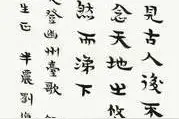 見古人後不
念天地之悠
然而涕下
登幽州臺歌
生正 半農劉